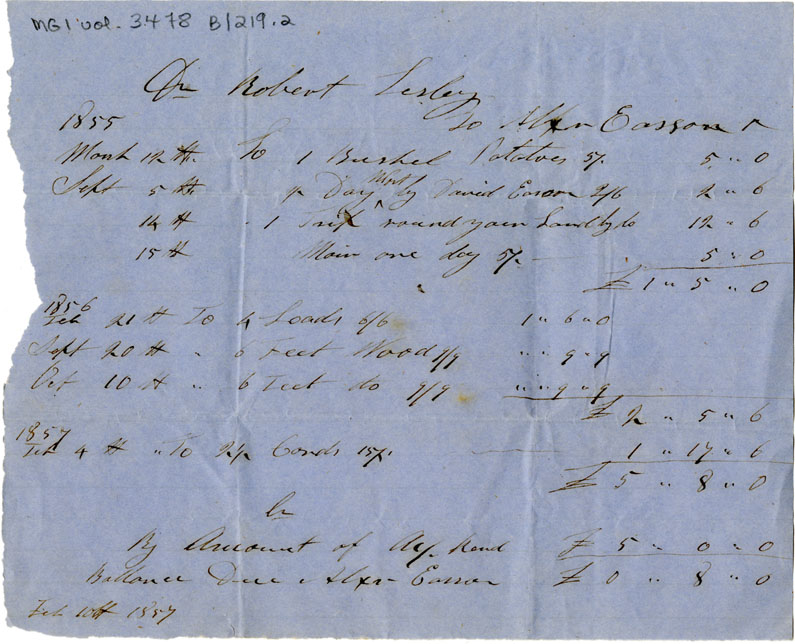 MG1 vol. 3478 B/219.2
Dr Robert Lesley
1855 To Alxr Easson
March 12 th. To 1 Bushel Potatoes 5/. 5 " 0
Sept 5 th " Day Work by David Easson 2/6 2 " 6
14 th " 1 Trip round your Land by do 12 " 6
15 th Moin one day 5/. 5 " 0
£ 1 " 5 " 0
1856
Feb 21 th To 4 Loads 6/6 1 " 6 " 0
Sept 20 th " 6 Feet Wood 9/9 " " 9 " 9
Oct 10 th " 6 Feet do 9/9 " " 9 " 9
£ 2 " 5 " 6
1857
Feb 4 th " To 2 1/2 Cords 15/. 1 " 17 " 6
£ 5 " 8 " 0
Cr
By Amount of Rend £ 5 " 0 " 0
Ballance Due Alxr Easson £ 0 " 8 " 0
Feb 10th 1857